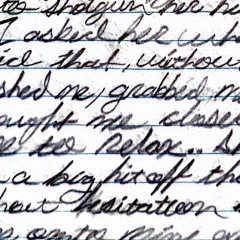 to shotgun her h
I asked her whe
id that, withou
shed me, grabbed m
ought me close
e to relax.. S
a big hit off th
hout hesitation
onto mine